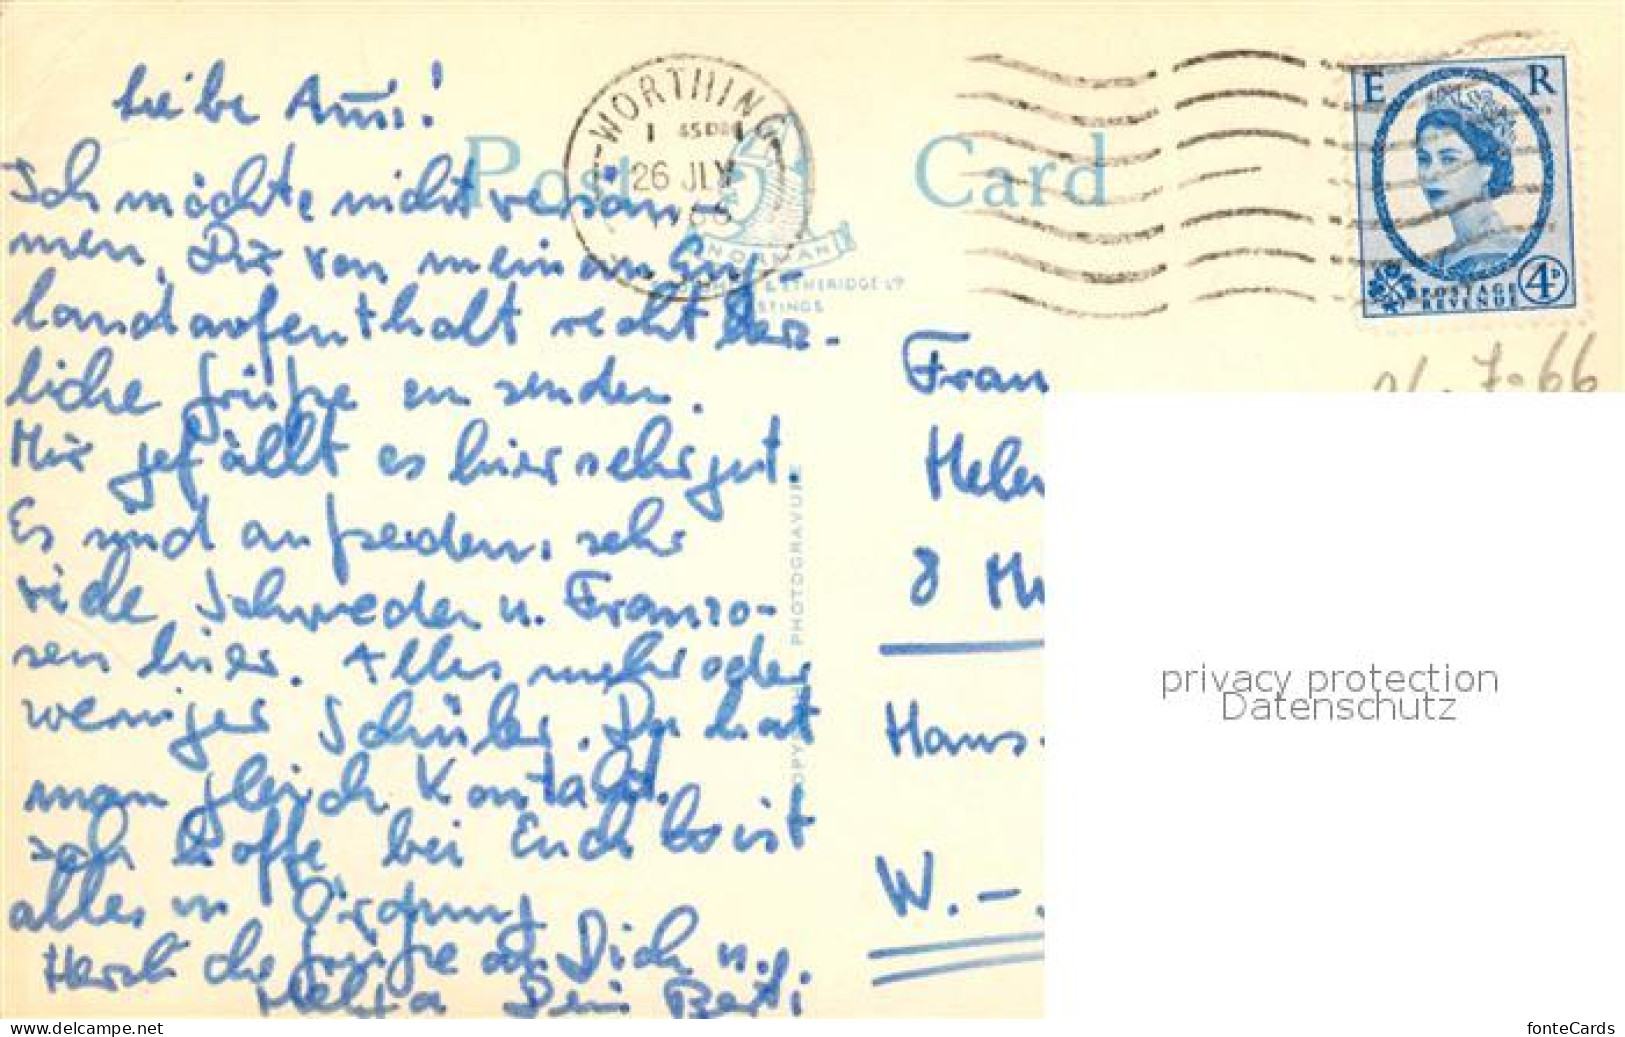 Liebe
Post Card
WORTHING
1 45 PM
26 JLY
1966
E R
POSTAGE
REVENUE
4D
NORMAN
& ETHERIDGE LTD
HASTINGS
PHOTOGRAVURE
Ich möchte nicht versäu-
men, Dir von meinem Eng-
landaufenthalt recht herz-
liche Grüße zu senden.
Mir gefällt es hier sehr gut.
Es sind außerdem sehr
viele Schweden u. Franzo-
sen hier. Alles mehr oder
weniger Schüler. Da hat
man gleich Kontakt.
Ich hoffe, bei Euch ist
alles in Ordnung
Herzliche Grüße an Dich u.
Dein
7.66
Frau
Helen
8 Mü
Hans-
W.-
privacy protection
Datenschutz
www.delcampe.net
fonteCards